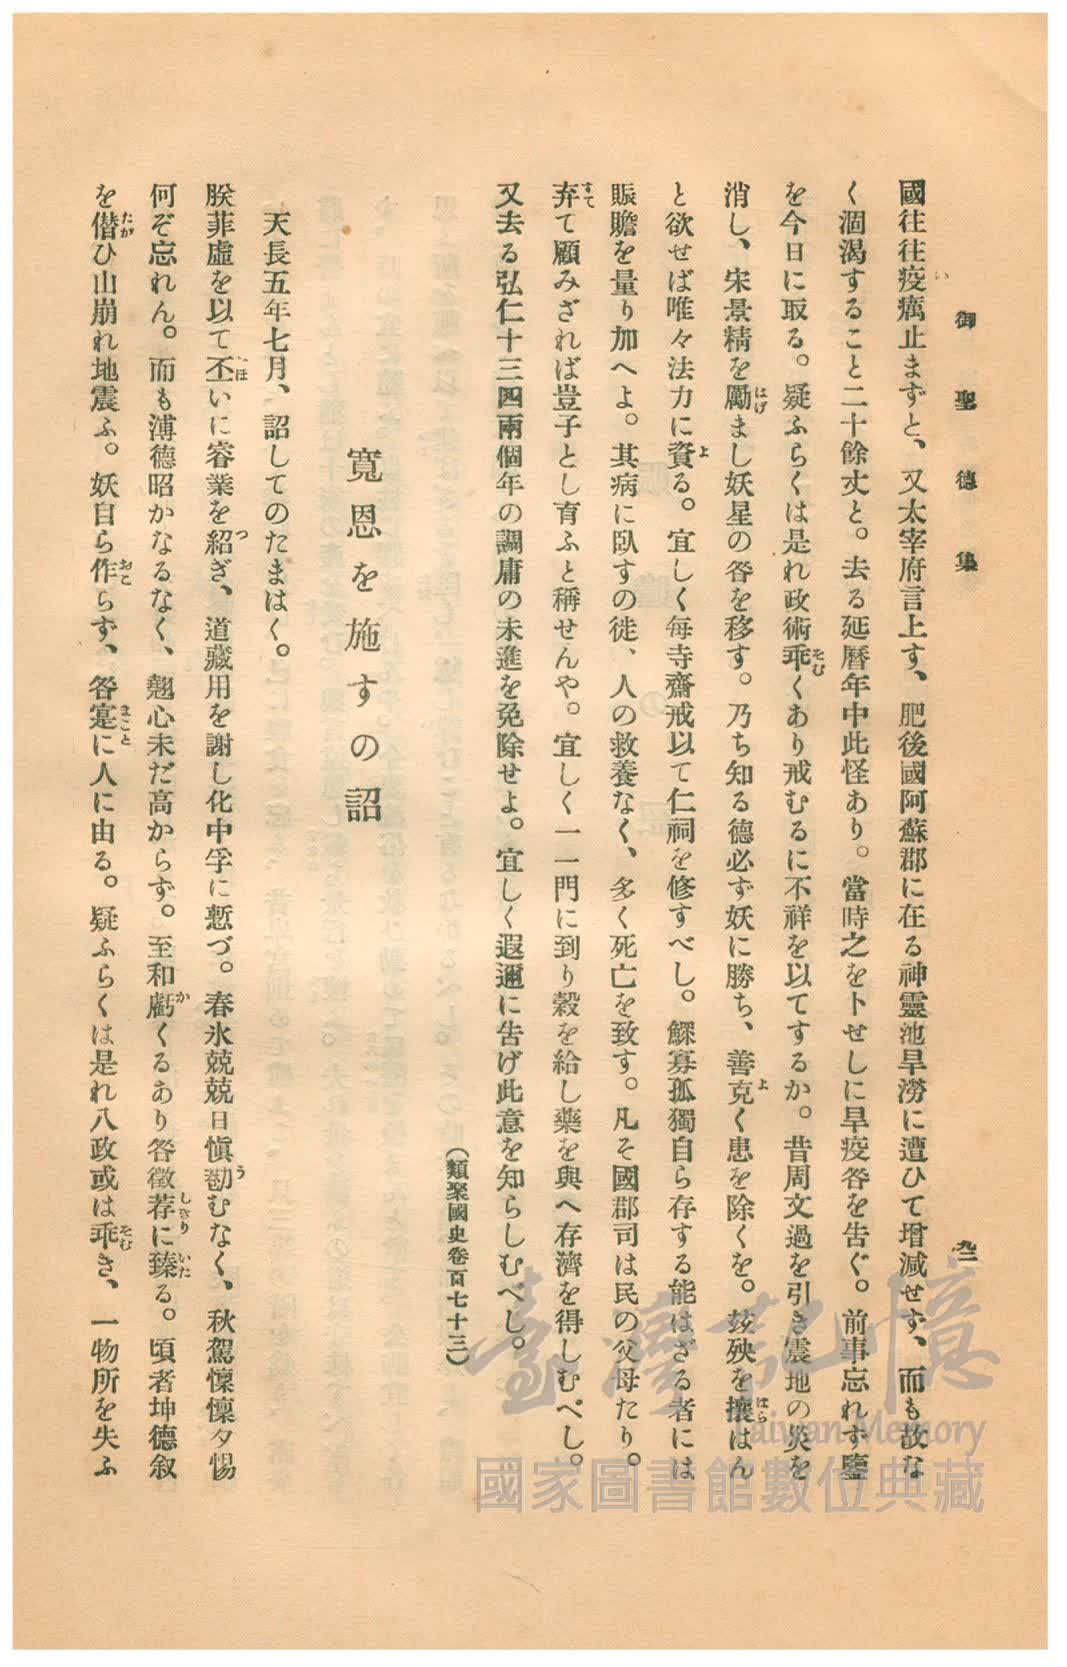 御聖德集
九二
國往往疫癘止まずと、又太宰府言上す、肥後國阿蘇郡に在る神靈池旱澇に遭ひて增減せず、而も故な
く涸渴すること二十餘丈と。去る延曆年中此怪あり。當時之を卜せしに旱疫咎を告ぐ。前事忘れず鑒
を今日に取る。疑ふらくは是れ政術乖くあり戒むるに不祥を以てするか。昔周文過を引き震地の災を
消し、宋景精を勵まし妖星の咎を移す。乃ち知る德必ず妖に勝ち、善克く患を除くを。玆殃を攘はん
と欲せば唯々法力に資る。宜しく每寺齋戒以て仁祠を修すべし。鰥寡孤獨自ら存する能はざる者には
賑贍を量り加へよ。其病に臥すの徒、人の救養なく、多く死亡を致す。凡そ國郡司は民の父母たり。
弃て顧みざれば豈子とし育ふと稱せんや。宜しく一一門に到り穀を給し藥を與へ存濟を得しむべし。
又去る弘仁十三四兩個年の調庸の未進を免除せよ。宜しく遐邇に告げ此意を知らしむべし。
（類聚國史卷百七十三）
寬恩を施すの詔
天長五年七月、詔してのたまはく。
朕菲虛を以て丕いに睿業を紹ぎ、道藏用を謝し化中孚に慙づ。春氷兢兢日愼勸むなく、秋駕懍懍夕惕
何ぞ忘れん。而も溥德昭かなるなく、翹心未だ高からず。至和虧くるあり咎徵荐に臻る。頃者坤德叙
を僭ひ山崩れ地震ふ。妖自ら作らず、咎寔に人に由る。疑ふらくは是れ八政或は乖き、一物所を失ふ
臺灣記憶
Taiwan Memory
國家圖書館數位典藏